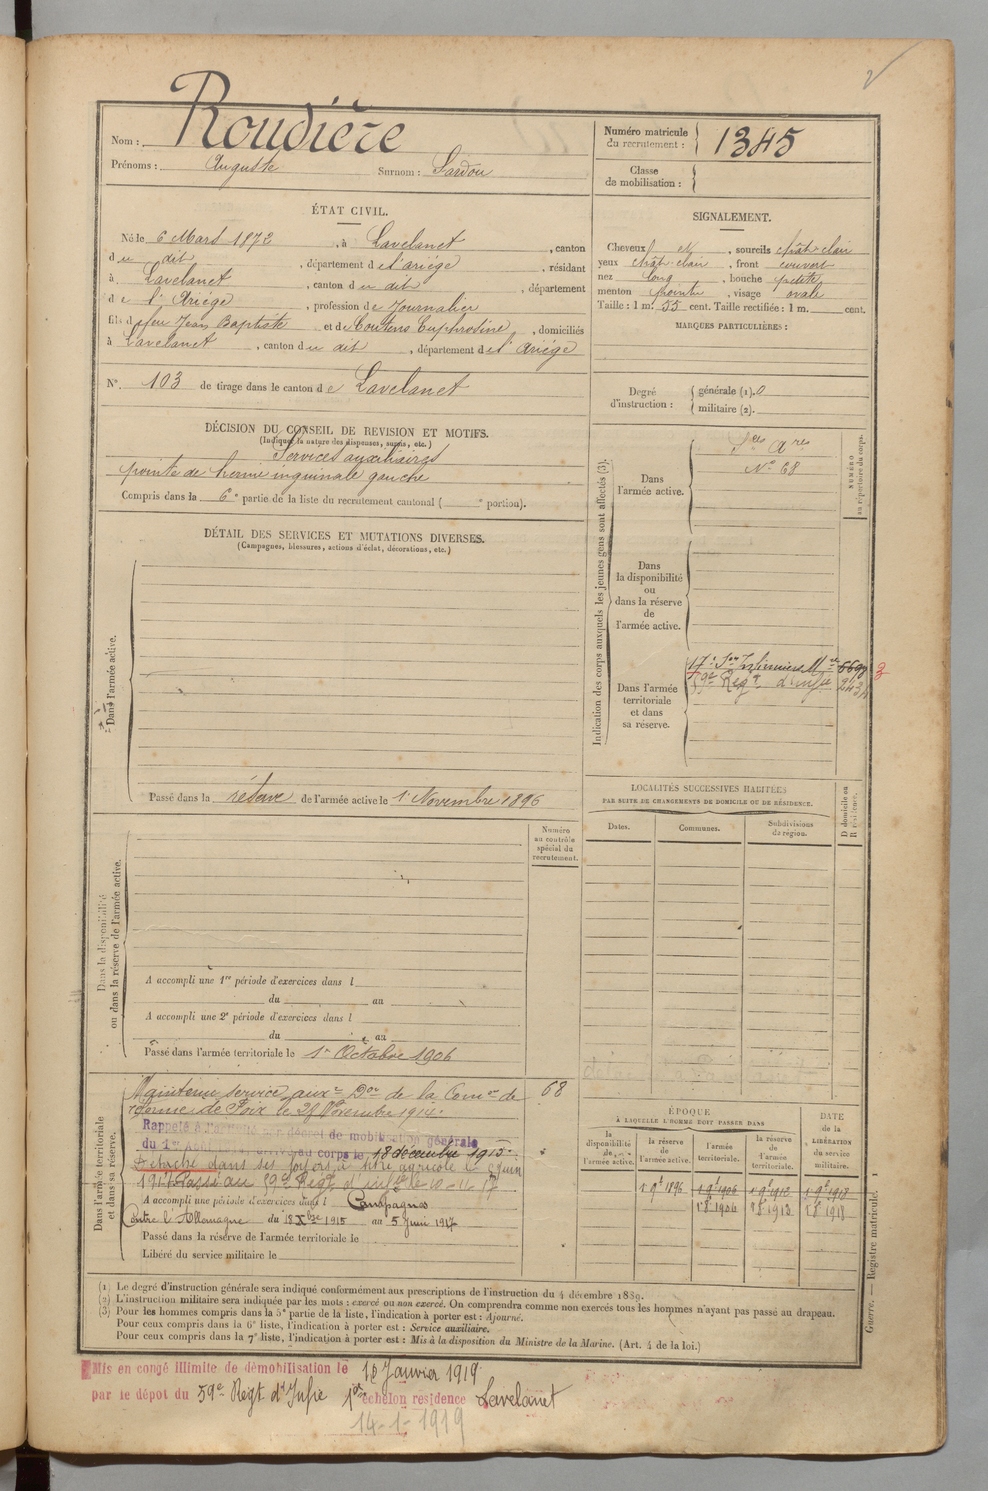 Nom : Roudière
Prénoms : Auguste Surnom : Sardou
Numéro matricule du recrutement : 1345
Classe de mobilisation :
ÉTAT CIVIL.
Né le 6 Mars 1872, à Lavelanet, canton
du dit, département de l'ariége, résidant
à Lavelanet, canton du dit, département
de l'Ariége, profession de Journalier
fils de feu Jean Baptiste et de Coutens Euphrosine, domiciliés
à Lavelanet, canton du dit, département de l'ariége
SIGNALEMENT.
Cheveux et, sourcils chât-clair
yeux chât-clair, front couvert
nez long, bouche petite
menton pointu, visage ovale
Taille : 1 m. 55 cent. Taille rectifiée : 1 m. cent.
MARQUES PARTICULIÈRES :
N° 103 de tirage dans le canton de Lavelanet
Degré d'instruction : générale (1). 0
militaire (2).
DÉCISION DU CONSEIL DE REVISION ET MOTIFS.
(Indiquer la nature des dispenses, sursis, etc.)
Services auxiliaires
pointe de hernie inguinale gauche
Compris dans la 6e partie de la liste du recrutement cantonal ( e portion).
DÉTAIL DES SERVICES ET MUTATIONS DIVERSES.
(Campagnes, blessures, actions d'éclat, décorations, etc.)
Dans l'armée active.
Passé dans la réserve de l'armée active le 1er Novembre 1896
Indication des corps auxquels les jeunes gens sont affectés (3).
NUMÉRO au répertoire du corps.
Dans l'armée active.
Ses Ares
N° 68
Dans la disponibilité ou dans la réserve de l'armée active.
Dans l'armée territoriale et dans sa réserve.
17e Son Infirmiers Mres
59e Regt d'infie
LOCALITÉS SUCCESSIVES HABITÉES
PAR SUITE DE CHANGEMENTS DE DOMICILE OU DE RÉSIDENCE.
D domicile ou R résidence.
Dates. Communes. Subdivisions de région.
Numéro au contrôle spécial du recrutement.
Dans la disponibilité ou dans la réserve de l'armée active.
A accompli une 1re période d'exercices dans l
du au
A accompli une 2e période d'exercices dans l
du au
Passé dans l'armée territoriale le 1er Octobre 1906
Dans l'armée territoriale et dans sa réserve.
Maintenu service auxre Don de la Comon de 68
réforme de Foix le 28 Novembre 1914.
Rappelé à l'activité par décret de mobilisation générale
du 1er Août au corps le 18 décembre 1915.
Détaché dans ses foyers à titre agricole le 5 juin
1917. Passé au 59e Regt d'infie le 10-11-17
A accompli une période d'exercices dans l Campagnes
Contre l'Allemagne du 18 Xbre 1915 au 5 Juin 1917
Passé dans la réserve de l'armée territoriale le
Libéré du service militaire le
ÉPOQUE
À LAQUELLE L'HOMME DOIT PASSER DANS
la disponibilité de l'armée active.
la réserve de l'armée active.
l'armée territoriale.
la réserve de l'armée territoriale.
DATE de la LIBÉRATION du service militaire.
1 9e 1896 1 9e 1906 1 9e 1912 1 9e 1918
(1) Le degré d'instruction générale sera indiqué conformément aux prescriptions de l'instruction du 4 décembre 1889.
(2) L'instruction militaire sera indiquée par les mots : exercé ou non exercé. On comprendra comme non exercés tous les hommes n'ayant pas passé au drapeau.
(3) Pour les hommes compris dans la 5e partie de la liste, l'indication à porter est : Ajourné.
Pour ceux compris dans la 6e liste, l'indication à porter est : Service auxiliaire.
Pour ceux compris dans la 7e liste, l'indication à porter est : Mis à la disposition du Ministre de la Marine. (Art. 4 de la loi.)
Guerre. — Registre matricule.
Mis en congé illimité de démobilisation le Janvier 1919
par le dépot du 59e Regt d'Infie 1er échelon résidence Lavelanet
14-1-1919